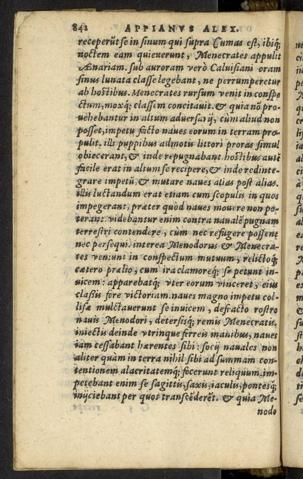 842 APPIANVS ALEX.
receperūt se in sinum qui supra Cumas est, ibiq́;
noctem eam quieuerunt, Menecrates appulit
Ænariam. sub auroram verò Caluisiani oram
sinus lunata classe legebant, ne perrumperetur
ab hostibus. Menecrates rursum venit in conspe
ctum, moxq́; classem concitauit. & quia nō pro-
uehebantur in altum aduersarij, cùm aliud non
posset, impetu facto naues eorum in terram pro-
pulit. illi puppibus admotis littori proras simul
obiecerant, & inde repugnabant. hostibus autē
facile erat in altum se recipere, & inde redinte-
grare impetū, & mutare naues alias post alias.
illis luctandum erat etiam cum scopulis in quos
impegerant, præter quòd naues mouere non po-
terant. videbantur enim contra nauale pugnam
terrestri contendere, cùm nec refugere possent
nec persequi. interea Menodorus & Menecra-
tes venïunt in conspectum mutuum, relictoq́;
cætero prælio, cum ira clamoreq́; se petunt in-
uicem: apparebatq́; vter eorum vinceret, eius
classis fore victoriam. naues magno impetu col-
lisæ mulctauerunt se inuicem, defracto rostro
nauis Menodori, detersisq́; remis Menecratis.
iniectis deinde vtrinque ferreis manibus, naues
iam cessabant hærentes sibi: socij nauales non
aliter quàm in terra nihil sibi ad summam con-
tentionem alacritatemq́; fecerunt reliquum. im-
petebant enim se sagittis, saxis, iaculis, pontesq́;
inijciebant per quos transcēderēt. & quia Me-
nodo